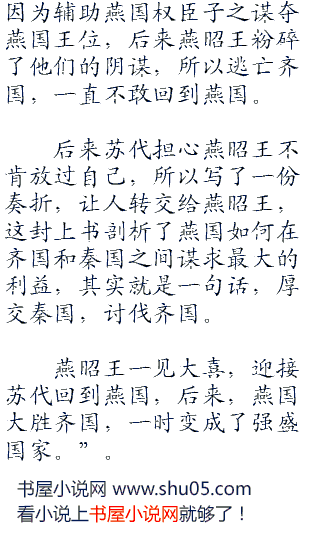 因为辅助燕国权臣子之谋夺
燕国王位，后来燕昭王粉碎
了他们的阴谋，所以逃亡齐
国，一直不敢回到燕国。
后来苏代担心燕昭王不
肯放过自己，所以写了一份
奏折，让人转交给燕昭王，
这封上书剖析了燕国如何在
齐国和秦国之间谋求最大的
利益，其实就是一句话，厚
交秦国，讨伐齐国。
燕昭王一见大喜，迎接
苏代回到燕国，后来，燕国
大胜齐国，一时变成了强盛
国家。”。
书屋小说网 www.shu05.com
看小说上书屋小说网就够了！